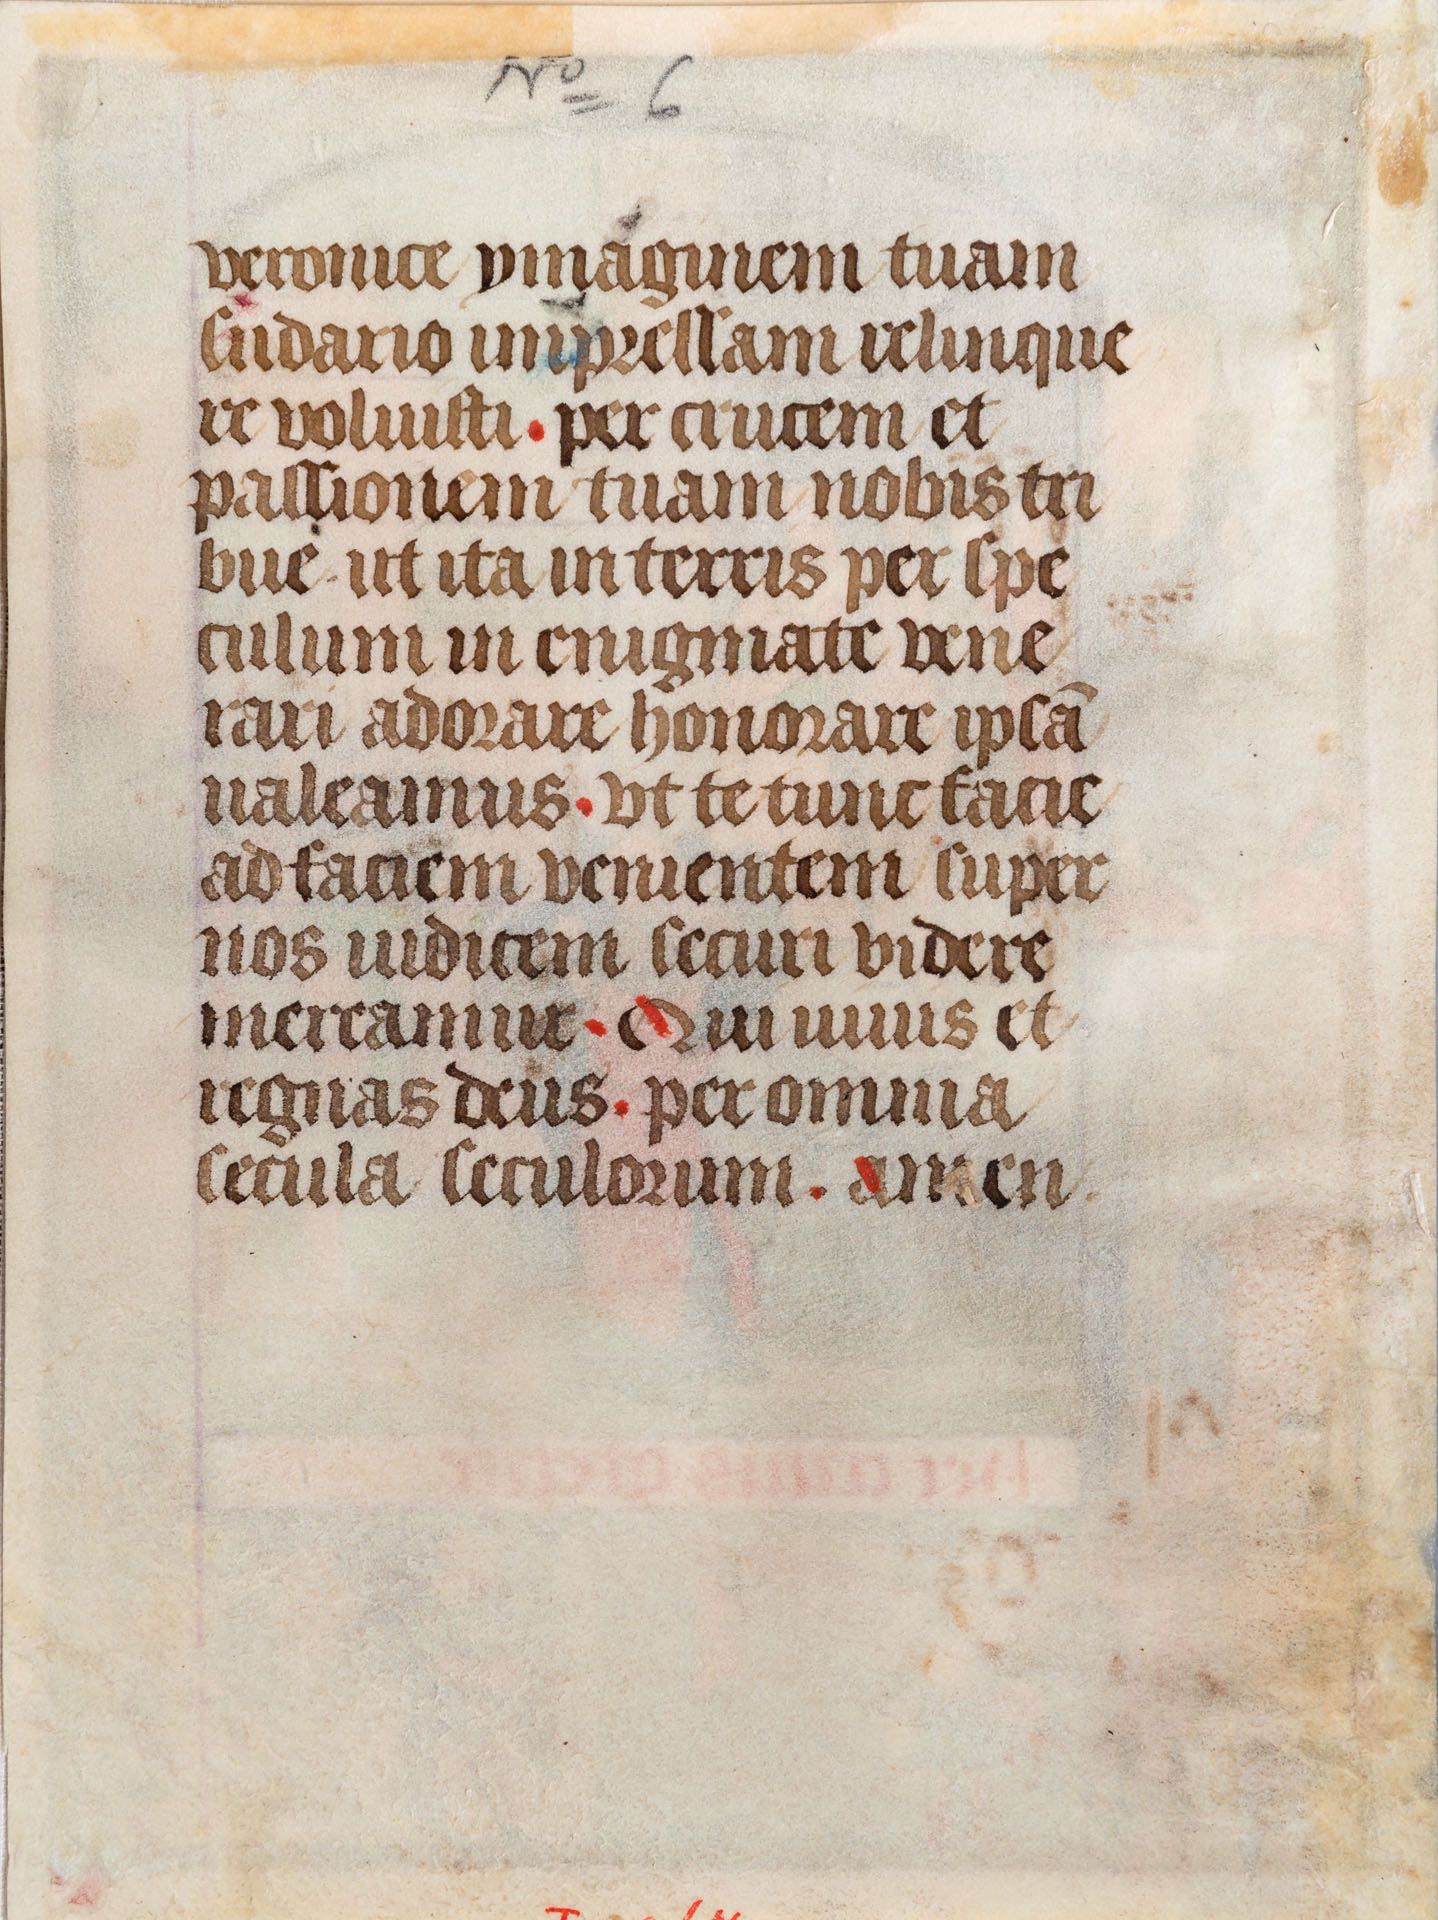 Nº 6
veronice ymaginem tuam
sudario impressam relinque
re voluisti · per crucem et
passionem tuam nobis tri
bue · ut ita in terris per spe
culum in enigmate vene
rari adorare honorare ipsā
ualeamus · vt te tunc facie
ad faciem venientem super
nos iudicem securi videre
mereamur · Qui uiuis et
regnas deus · per omnia
secula seculorum · amen